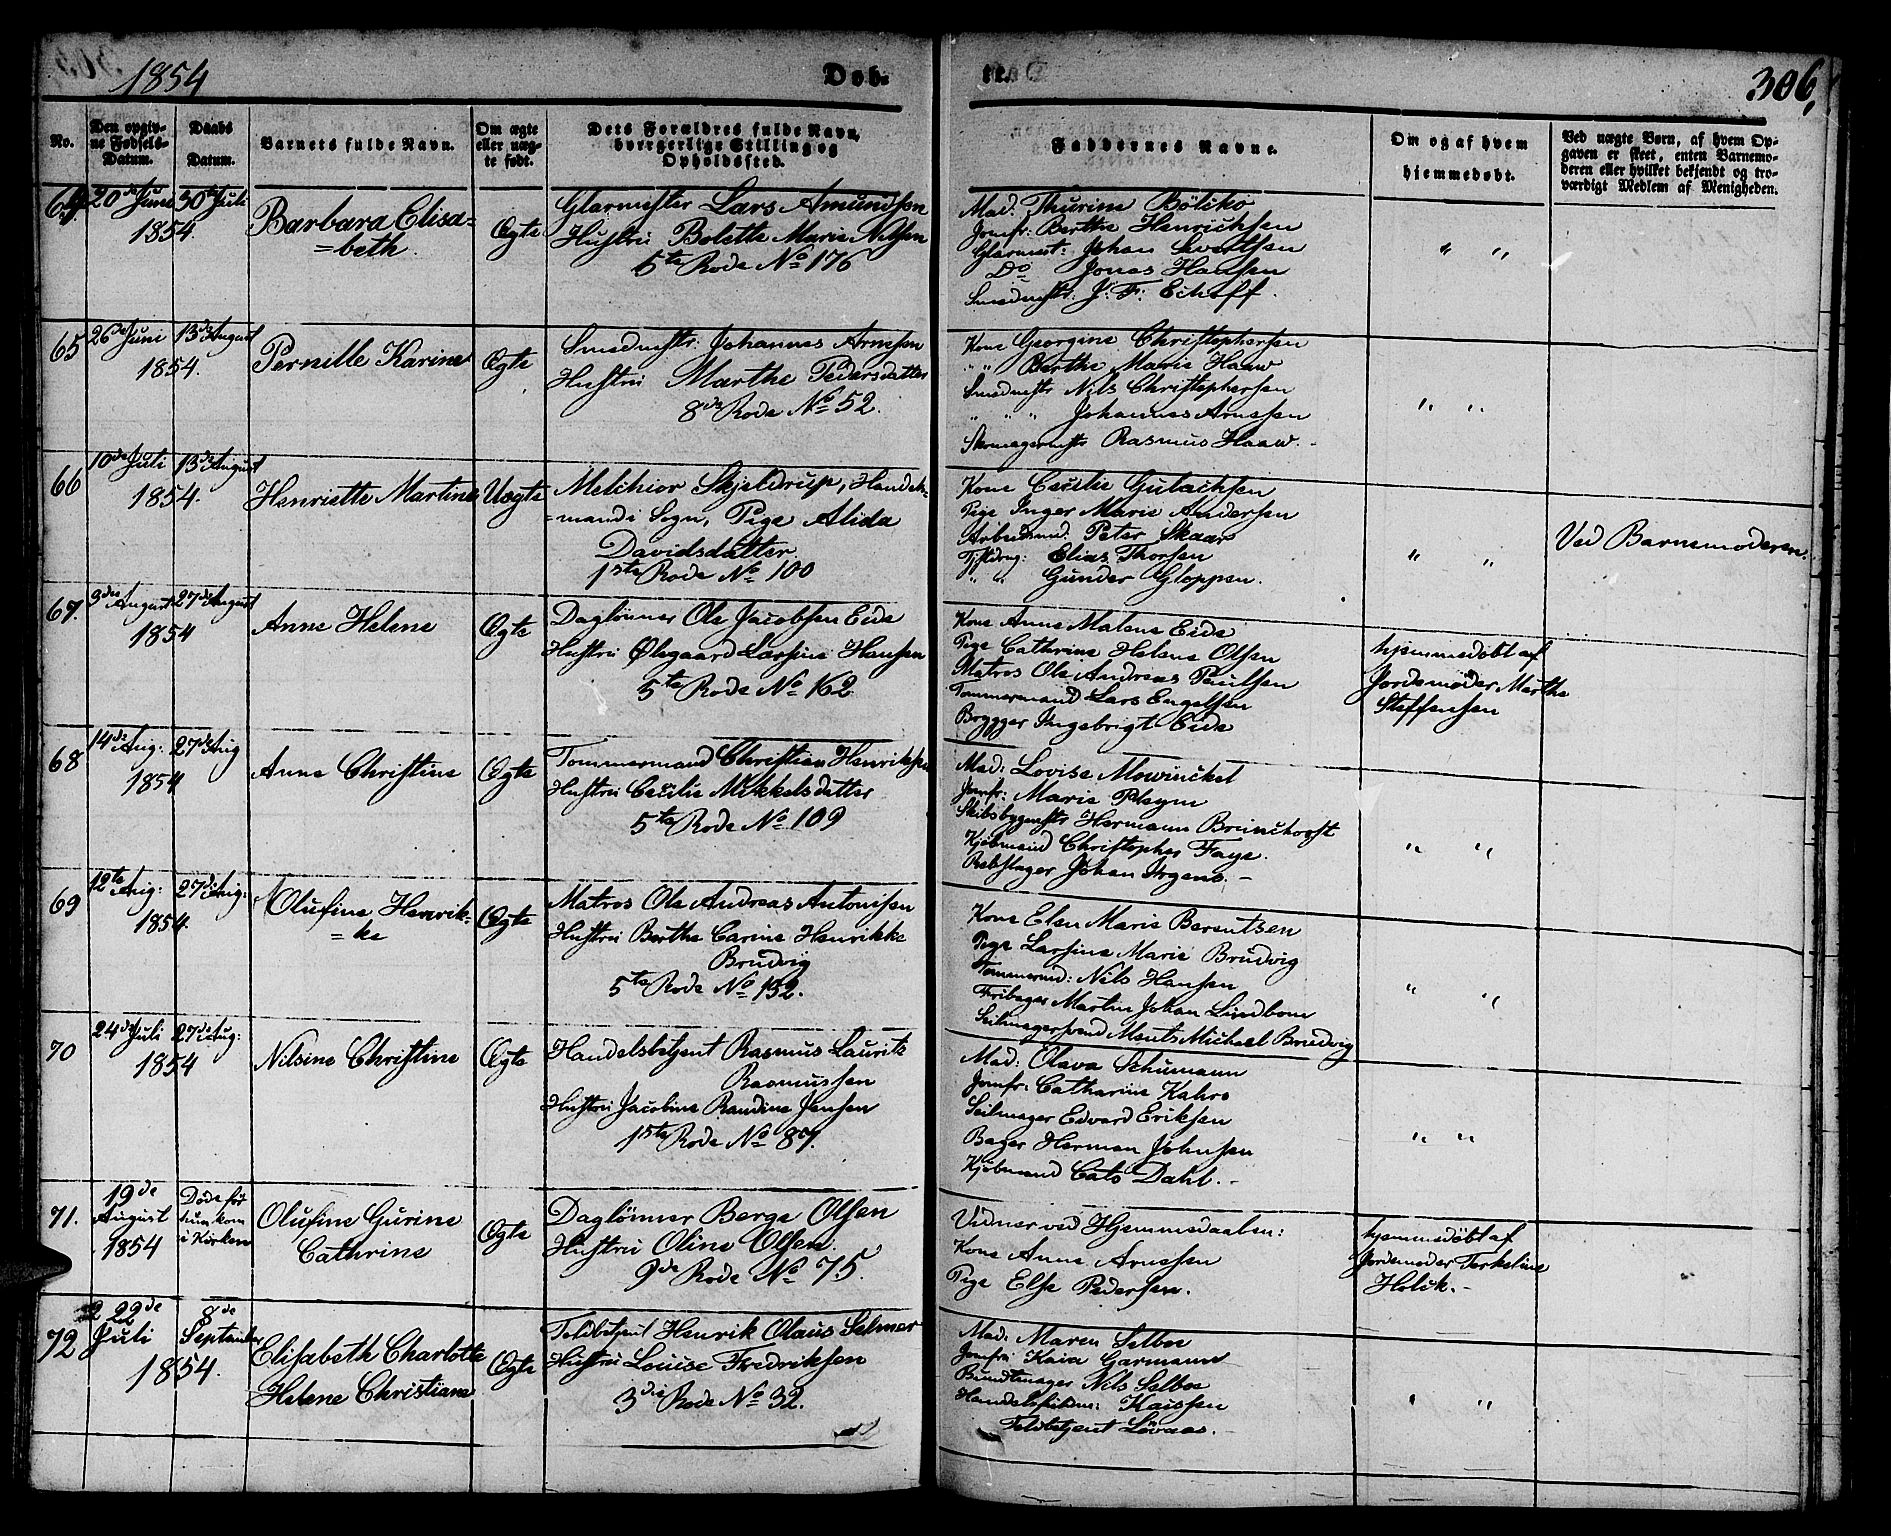 1854
Døb-
te.
306,
No.
Den opgiv-
ne Fødsels-
Datum.
Daabs
Datum.
Barnets fulde Navn.
Om ægte
eller uæg-
te født.
Dets Forældres fulde Navn,
borgerlige Stilling og
Opholdssted.
Faddernes Navne.
Om og af hvem
hjemmedøbt.
Ved uægte Børn, af hvem Op-
gaven er skeet, enten Barnemo-
deren eller hvilket bekjendt og tro-
værdigt Medlem af Menigheden.
64
20de Juni
1854.
30te Juli
Barbara Elisa=
=beth.
Ægte
Glarmester Lars Amundsen
Hustru Bolette Marie Nilsen
5te Rode No 176
Mad: Thurine
Jomfr: Berthe Henrichsen
Glarmest: Johan Evertsen
Do Jonas Hansen
Smedmstr: J: F: Echoff.
" "
65
26de Juni
1854.
13de August
Pernille Karine
Ægte
Smedmstr: Johannes Arnesen
Hustru Marthe Pedersdatter
8de Rode No 52.
Kone Georgine Christophersen
" " Berthe Marie Haaw
Smedmstr Nils Christophersen
" " " Johannes Arnesen
Skomagermstr Rasmus Haaw. -
" "
66
10de Juli
1854.
13de August
Henriette Martine
Uægte
Melchior Skjeldrup, Handels-
=mand i Sogn, Pige Alida
Davidsdatter.
1ste Rode No 100
Kone Cecilie Gulachsen
Pige Inger Marie Andersen
Arbeidsmd. Peter Skaar
Tjstdrng: Elias Thorsen
" " Gunder Gloppen.
" "
Ved Barnemoderen.
67.
3die August
1854
27de August
Anne Helene
Ægte
Daglønner Ole Jacobsen Eide
Hustru Ølegaard Larsine Hansen
5te Rode No 162
Kone Anne Malene Eide
Pige Cathrine Helene Olsen
Matros Ole Andreas Paulsen
Tømmermand Lars Engelsen
Brygger Ingebrigt Eide
hjemmedøbt af
Jordemoder Marthe
Steffensen
68
14de Aug:
1854
27de Aug
Anne Christine
Ægte
Tømmermand Christian Henriksen
Hustru Cecilie Mikkelsdatter
5te Rode No 109
Mad: Lovise Mowinckel
Jomfr: Marie Pleym
Skibsbygmstr Hermann Brunchorst
Kjøbmand Christopher Faye.
Rebslager Johan Irgens. -
" "
69
12te Aug:
1854.
27de Aug:
Olufine Henrik-
=ke
Ægte
Matros Ole Andreas Antonisen
Hustru Berthe Carine Henrikke
Brudvig
5te Rode No 152.
Kone Elen Marie Berentsen
Pige Larsine Marie Brudvig
Tømmermd: Nils Hansen
Fribager Martin Johan Lindbom
Seilmagersvend Ments Michael Brudvig
" "
70
24de Juli
1854
27de Aug:
Nilsine Christine
Ægte
Handelsbetjent Rasmus Lauritz
Rasmussen
Hustru Jacobine Randine Jensen
1ste Rode No 87.
Mad: Olava Schumann
Jomfr: Catharine Kahrs
Seilmager Edvard Eriksen
Bager Herman Johnsen
Kjøbmand Cats Dahl. -
" "
71.
19de
August
1854
Døde før
hun kom
i Kirken
Olufine Gurine
Cathrine
Ægte
Daglönner Berge Olsen
Hustru Oline Olsen.
9de Rode No 75.
Vidner ved Hjemmedaaben:
Kone Anne Arnesen
Pige Else Pedersen.
hjemmedøbt af
Jordemoder Terkeline
Holck. -
72
22de
Juli
1854.
8de
September
Elisabeth Charlotte
Helene Christiane
Ægte
Toldbetjent Henrik Olaus Selmer
Hustru Louise Fredriksen
3die Rode No 32.
Mad: Maren Selboe
Jomfru Kaia Garmann
Bundtmager Nils Selboe
Kaissen
Toldbetjent Løvaas. -
" "